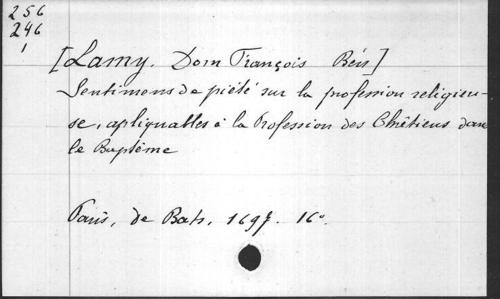 256
246
1
[Lamy. Dom François Bén]
Sentimens de piété sur la profession religieu-
se, apliquables à la Profession des Chrêtiens dans
le Baptême
Paris, de Bats, 1697. 16°.